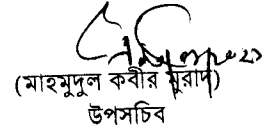 (মাহমুদুল কবীর মুরাদ)
উপসচিব